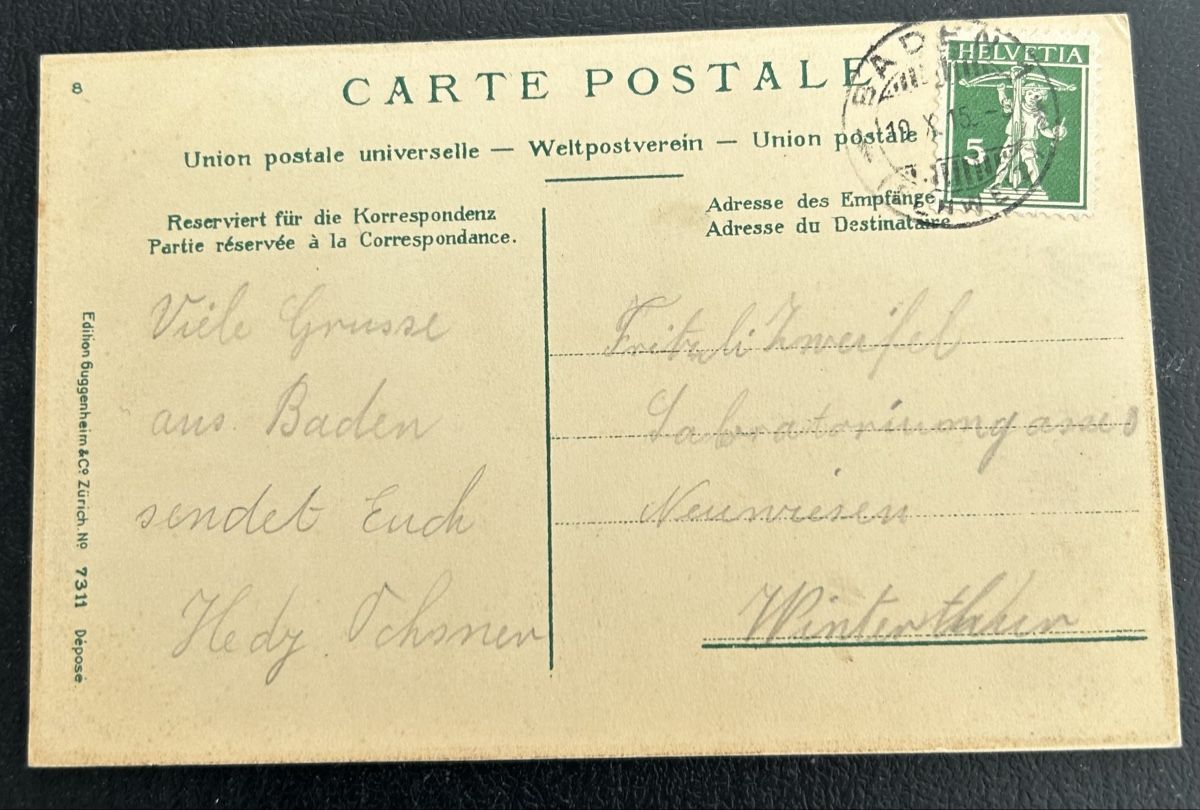 8
CARTE POSTALE
Union postale universelle — Weltpostverein — Union postale
Reserviert für die Korrespondenz
Partie réservée à la Correspondance.
Adresse des Empfänge
Adresse du Destinataire
HELVETIA
5
BADEN
Viele Grusse
aus Baden
sendet Euch
Hedy Ochsner
Fritzli Zweifel
Labratoriumgasse
Neuwiesen
Winterthur
Edition Guggenheim & Cº Zürich. Nº 7311 Déposé.